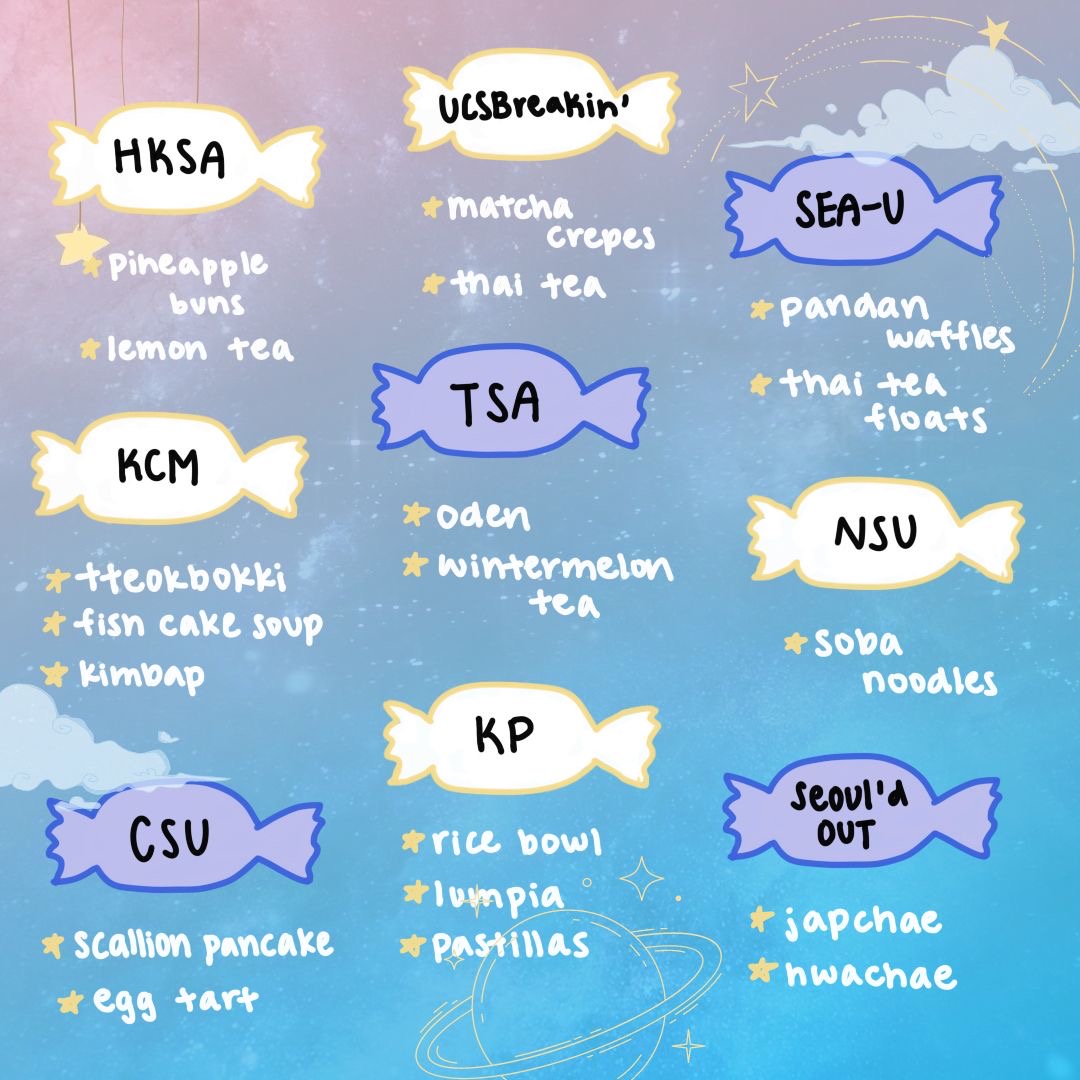 HKSA
pineapple
buns
lemon tea
KCM
tteokbokki
fish cake soup
kimbap
CSU
scallion pancake
egg tart
UCSBreakin'
matcha
crepes
thai tea
TSA
oden
wintermelon
tea
KP
rice bowl
lumpia
pastillas
SEA-U
pandan
waffles
thai tea
floats
NSU
soba
noodles
Seoul'd
OUT
japchae
hwachae